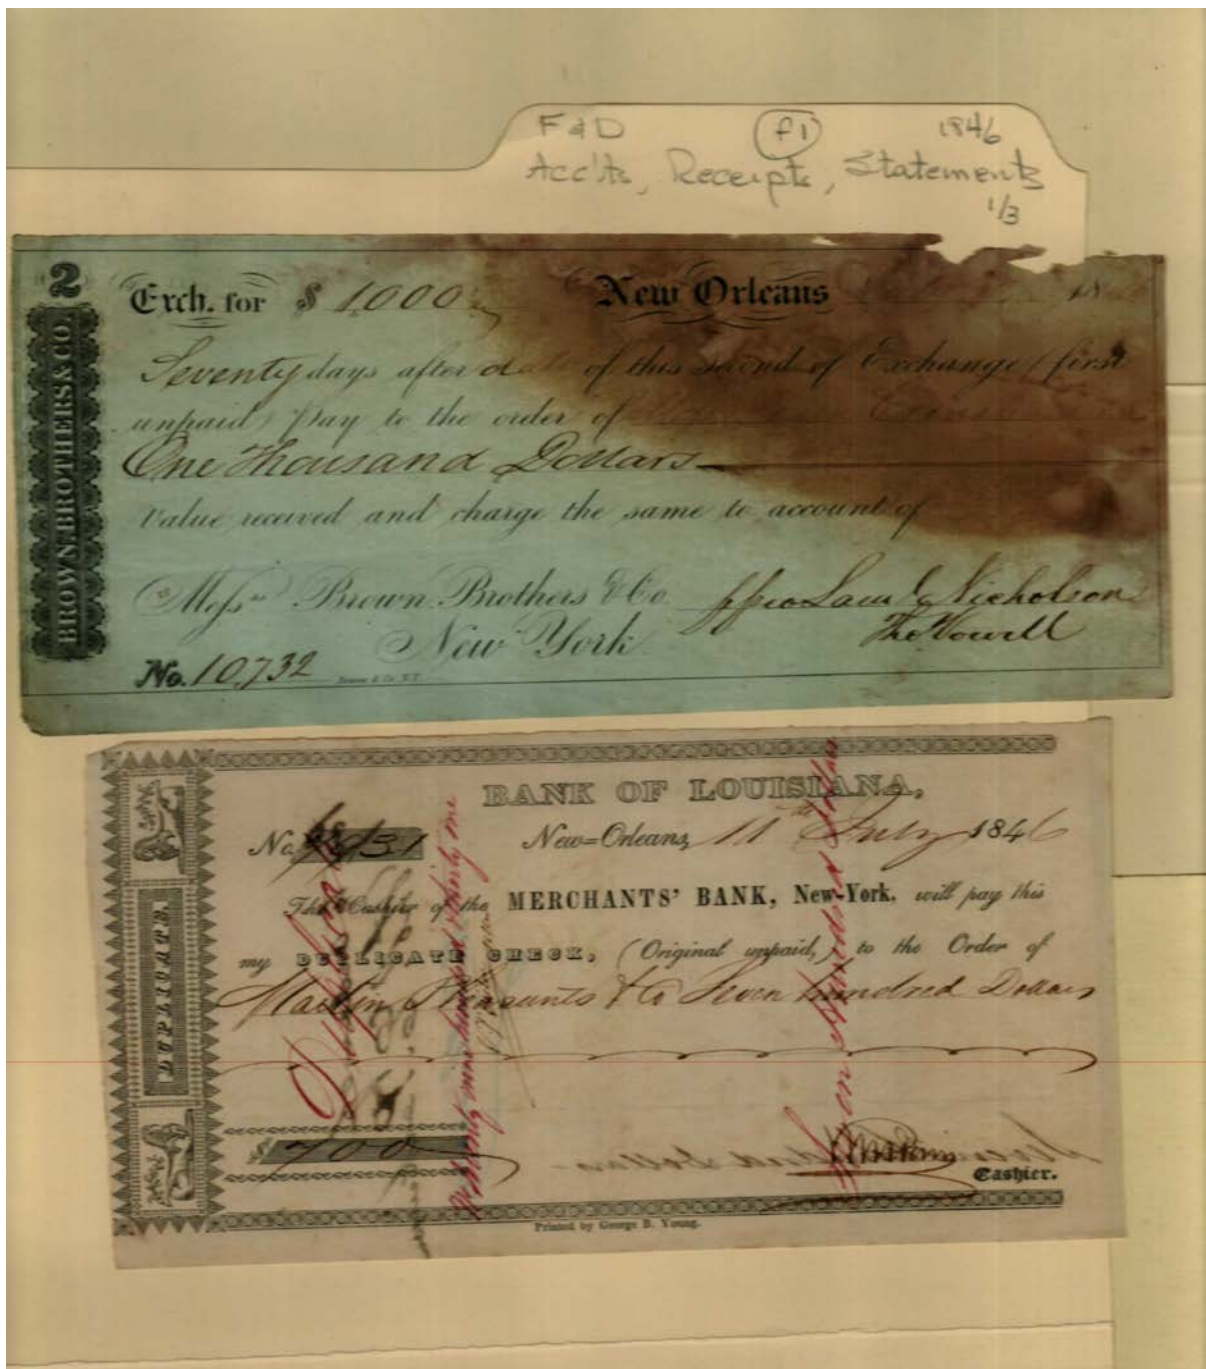 F & D f1 1846
Acc'ts, Receipts, Statements
1/3
2
BROWN, BROTHERS & CO.
Exch. for $ 1000 New Orleans 18
Seventy days after of this second of Exchange (first
unpaid) Pay to the order of
One Thousand Dollars
Value received and charge the same to account of
Messrs Brown Brothers & Co.
New York
Nicholson
Tho Vowell
No. 10,732
DUPLICATE.
BANK OF LOUISIANA,
No. New=Orleans, 11th July 1846
The Cashier of the MERCHANTS' BANK, New-York, will pay this
my DUPLICATE CHECK, (Original unpaid,) to the Order of
Martin Pleasants & Co Seven hundred Dollars
$ 700
Cashier.
Printed by George B. Young.
Duplicate
Seven hundred dollars